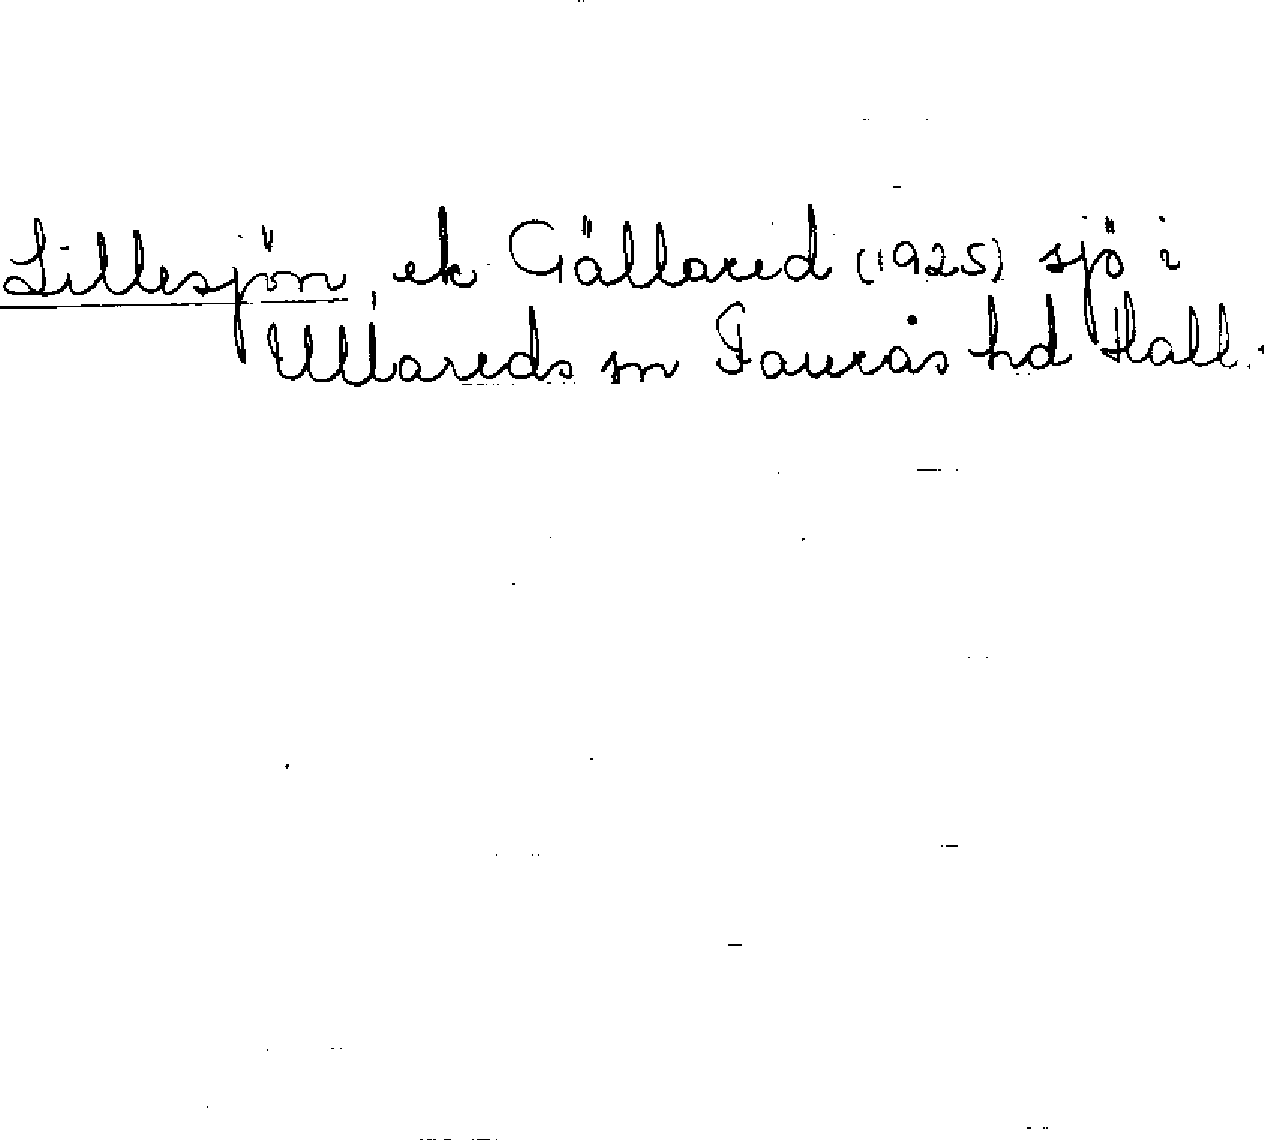 Lillesjön, ek Gällared (1925) sjö i
Ullareds sn Faurås hd Hall.